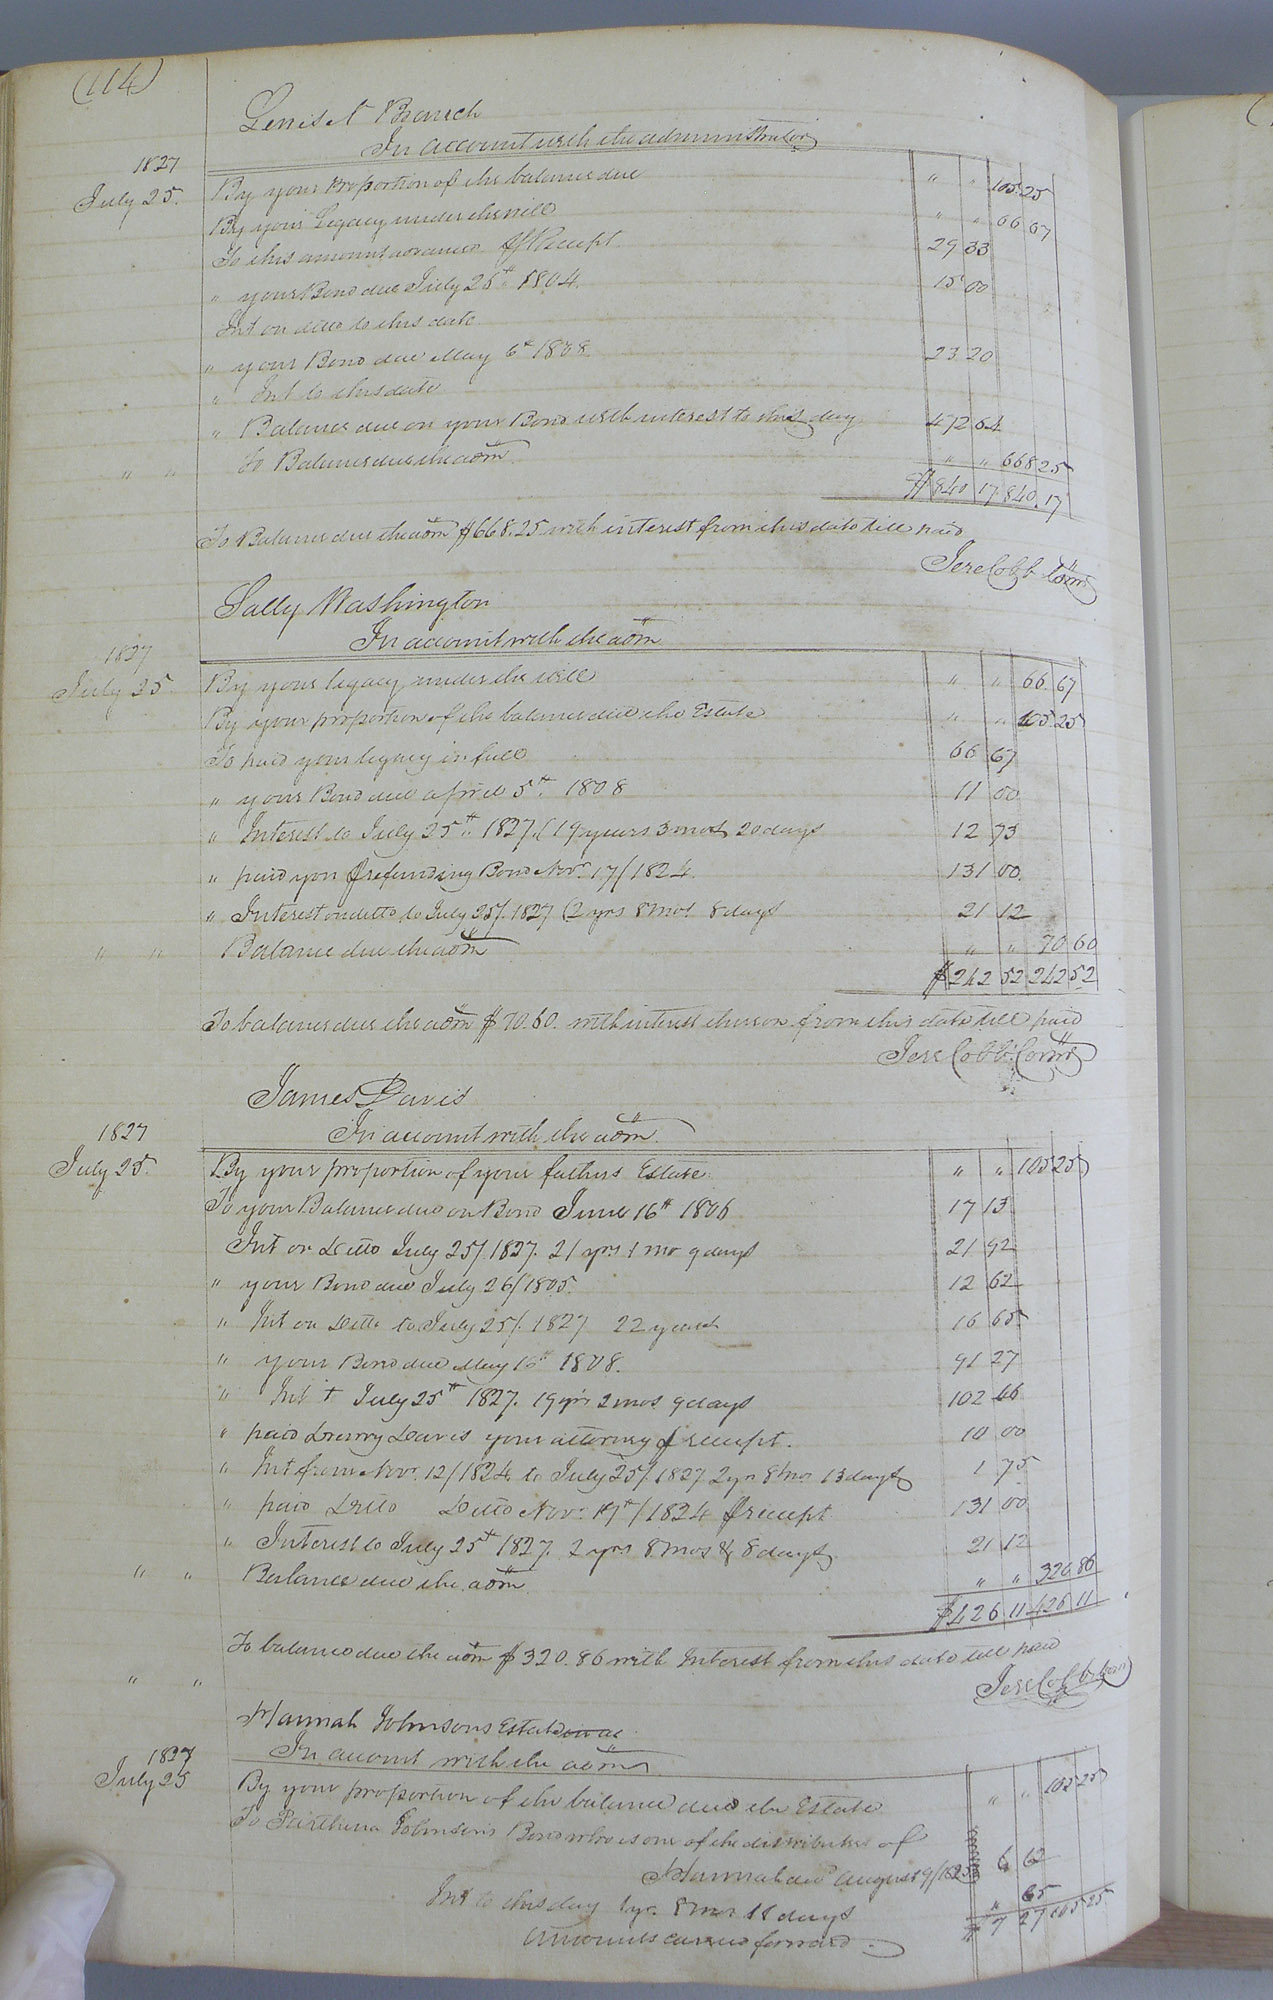 (114)
In account with the administrator
1827
July 25. By your Proportion of the balance due " " 105.25
By your Legacy under the will " " 66 67
To this amount advanced Receipt 29 33
" your Bond due July 26th 1804. 15 00
Int on ditto to this date
" your Bond due May 6th 1808. 23 20
" Int to this date
" Balance due on your Bond with interest to this day 472 64
" " To Balance due the adm " " 668 25
$ 840 17 840.17
To Balance due the adm $668.25 with interest from this date till paid
Jere Cobb Comr
Sally Washington
In account with the adm
1827
July 25. By your legacy under the will " " 66 67
By your proportion of the balance due the Estate " " 105.25
To paid your legacy in full 66 67
" your Bond due april 5th 1808 11 00
" Interest to July 25th 1827. (19 years 3 mos 20 days 12 73
" paid you refunding Bond Novr 17/1824. 131 00
" Interest on ditto to July 25/. 1827 (2 yrs 8 mos 8 days 21 12
" " Balance due the adm " " 70 60
$ 242 52 242 52
To balance due the adm $70.60. with interest thereon from this date till paid
Jere Cobb Comr
James Davis
In account with the adm
1827
July 25. By your proportion of your fathers Estate. " " 105 25
To your Balance due on Bond June 16th 1806 17 13
Int on Ditto July 25/. 1827. 21 yrs 1 mo 9 days 21 92
" your Bond due July 26/1805. 12 62
" Int on Ditto to July 25/. 1827 22 years 16 65
" your Bond due May 16th 1808. 91 27
" Int t July 25th 1827. 19 yrs 2 mos 9 days 102 66
" paid Drewry Davis your attorney receipt. 10 00
" Int from Novr. 12/1824 to July 25/. 1827 2 yr 8 mos 13 days 1 75
" paid Ditto Ditto Novr 17th/1824 receipt 131 00
" Interest to July 25th 1827. 2 yrs 8 mos & 8 days 21 12
" " Balance due the adm " " 320 86
$ 426 11 426 11
To balance due the adm $320.86 with Interest from this date till paid
" " Jere Cobb Comr
Hannah Johnsons Estate in ac
In account with the adm
1827
July 25 By your proportion of the balance due the Estate " " 105 25
To Parthena Johnson's Bond who is one of the distributees of
Hannah due August 9/1825 6 62
Int to this day 1 yr. 8 mos 18 days " 65
$ 7 27 105 25
Amounts carried forward.